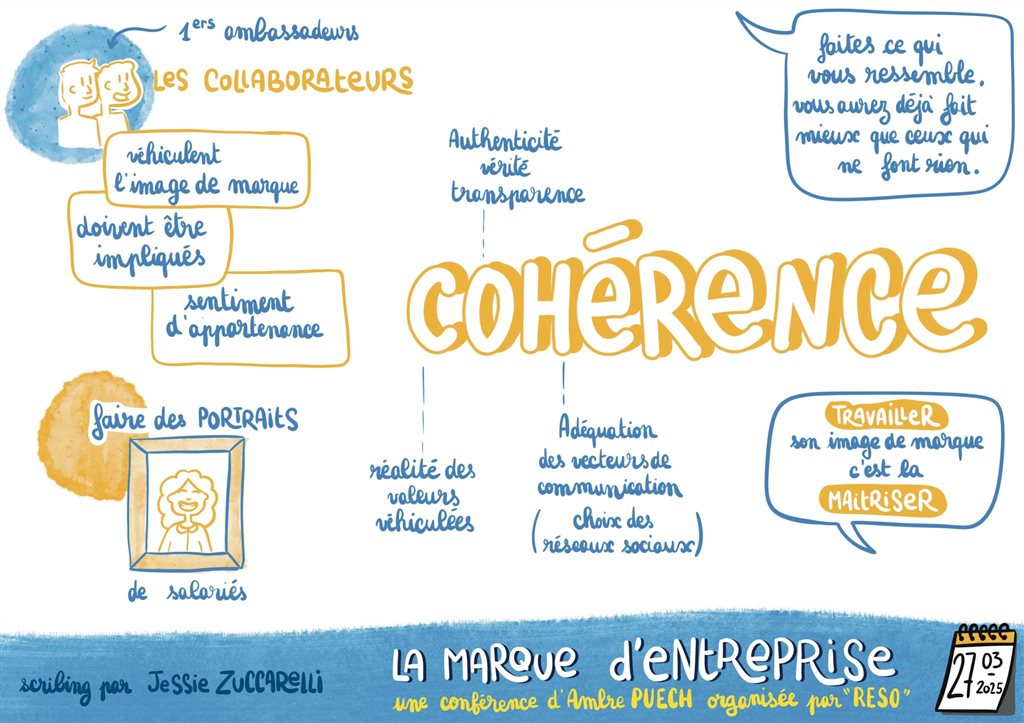 1ers ambassadeurs
LES COLLABORATEURS
véhiculent
l'image de marque
doivent être
impliqués
sentiment
d'appartenance
faire des PORTRAITS
de salariés
Authenticité
vérité
transparence
COHÉRENCE
réalité des
valeurs
véhiculées
Adéquation
des vecteurs de
communication
(choix des
réseaux sociaux)
faites ce qui
vous ressemble,
vous aurez déjà fait
mieux que ceux qui
ne font rien.
TRAVAILLER
son image de marque
c'est la
MAITRISER
scribing par Jessie ZUCCARELLI
LA MARQUE d'ENTREPRISE
une conférence d'Ambre PUECH organisée par "RESO"
27 03
2025